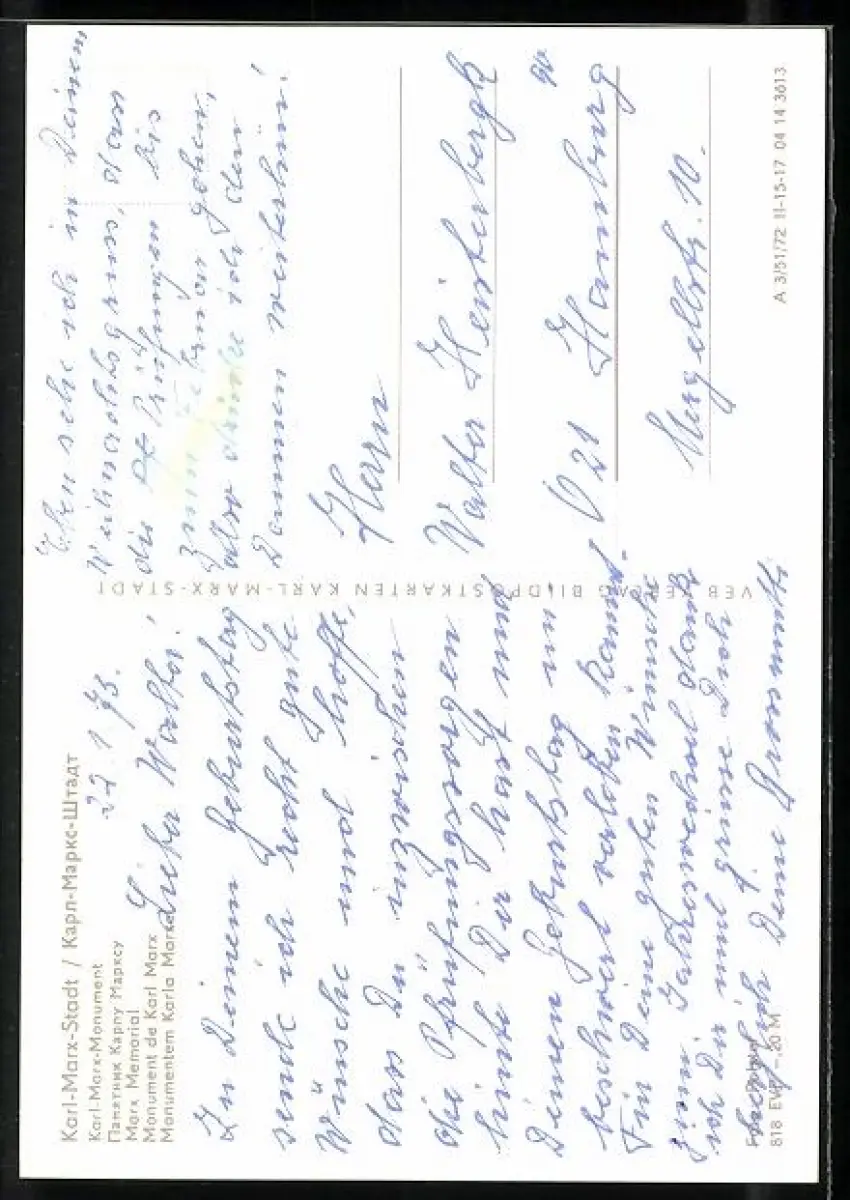 Karl-Marx-Stadt / Карл-Маркс-Штадт
Karl-Marx-Monument
Памятник Карлу Марксу
Marx Memorial
Monument de Karl Marx
Monumentem Karla Marxe
22.1.73.
Lieber Walter!
Zu Deinem Geburtstag
sende ich recht gute
Wünsche und hoffe,
dass Du inzwischen
die Prüfungssorgen
hinter Dir hast und
Deinen Geburtstag un
beschwert verleben kannst.
Für Deine guten Wünsche
zum Jahreswechsel danke
ich Dir und grüsse Dich
herzlich Deine Grossmutti
818 EVP -.20 M
VEB VERLAG BILDPOSTKARTEN KARL-MARX-STADT
Eben sehe ich in Deinem
Weihnachtsgruss, dass
die Prüfungen bis
zum Februar gehen,
also drücke ich den
Daumen weiterhin!
Herrn
Walter Heisterbergk
D 21 Hamburg 90
Mergellstr. 10.
A 3/51/72 II-15-17 04 14 3613